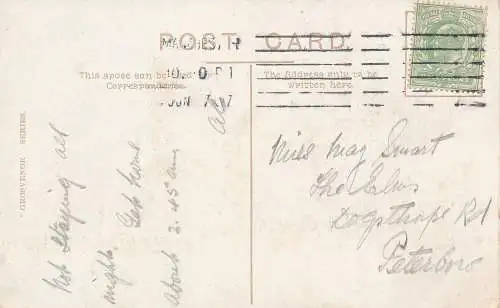 POST CARD.
This space can be used for
Correspondence.
The Address only to be
written here.
JUN 7 07
"GROSVENOR" SERIES.
Not staying all
night. Get home
about 2.45 am
Miss May Smart
The Elms
Dogsthorpe Rd
Peterboro